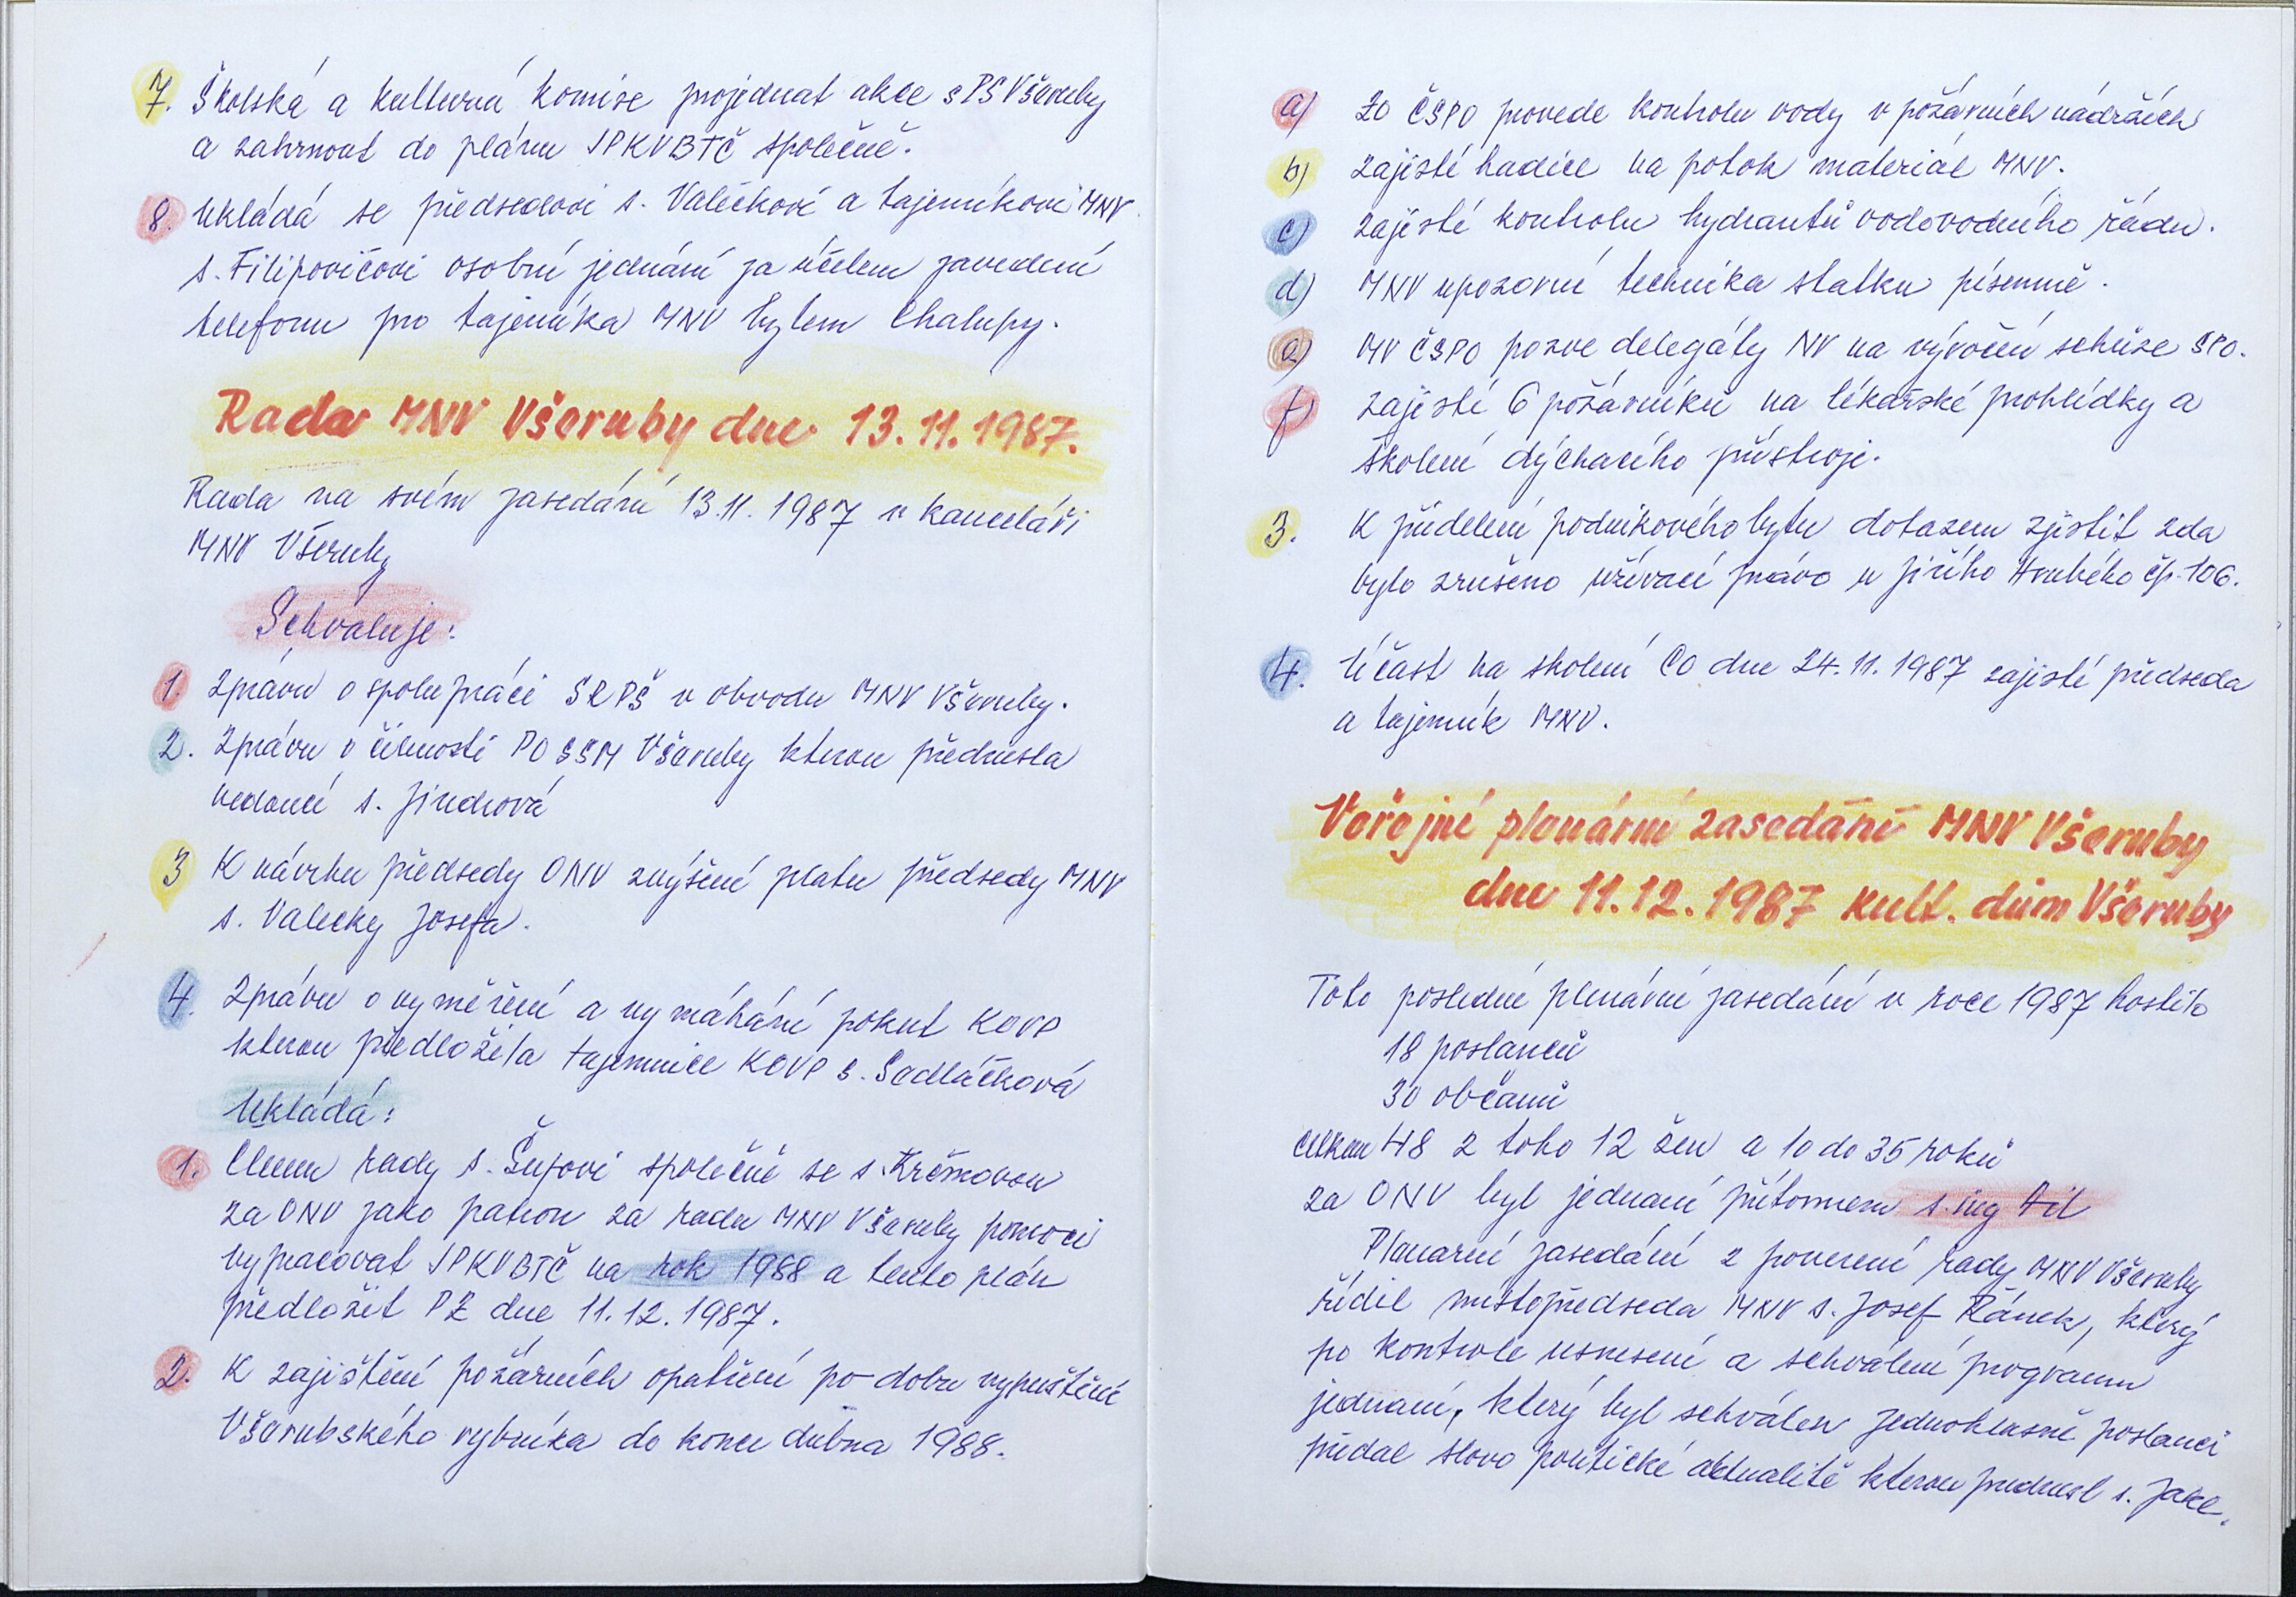 7. Školská a kulturní komise projednat akce s PS Všeruby
a zahrnout do plánu JPKVBTČ společně.
8. Ukládá se předsedovi s. Valečkovi a tajemníkovi MNV
s. Filipovičovi osobní jednání za účelem zavedení
telefonu pro tajemníka MNV bytem Chalupy.
Rada MNV Všeruby dne 13.11.1987.
Rada na svém zasedání 13.11.1987 v kanceláři
MNV Všeruby
Schvaluje:
1. Zprávu o spolupráci SRPŠ v obvodu MNV Všeruby.
2. Zprávu o činnosti PO SSM Všeruby kterou přednesla
vedoucí s. Jindrová
3 K návrhu předsedy ONV zvýšení platu předsedy MNV
s. Valečky Josefa.
4. Zprávu o vyměření a vymáhání pokut KOVP
kterou předložila tajemnice KOVP s. Sedláčková
Ukládá:
1. Členu rady s. Šupovi společně se s. Krčmovou
za ONV jako patron za radu MNV Všeruby pomoci
vypracovat JPKVBTČ na rok 1988 a tento plán
předložit PZ dne 11.12.1987.
2. K zajištění požárních opatření po dobu vypuštění
Všerubského rybníka do konce dubna 1988.
a) ZO ČSPO provede kontrolu vody v požárních nádržích
b) zajistí hadice na potok materiál MNV.
c) zajistí kontrolu hydrantů vodovodního řádu.
d) MNV upozorní technika statku písemně.
e) MV ČSPO pozve delegáty NV na výroční schůze SPO.
f) zajistí 6 požárníků na lékařské prohlídky a
školení dýchacího přístroje.
3. K přidelení podnikového bytu dotazem zjistit zda
bylo zrušeno užívací právo u Jiřího Hrubého čp. 106.
4. Účast na školení CO dne 24.11.1987 zajistí předseda
a tajemník MNV.
Veřejné plenární zasedání MNV Všeruby
dne 11.12.1987 kult. dům Všeruby
Toto poslední plenární zasedání v roce 1987 hostilo
18 poslanců
30 občanů
celkem 48 z toho 12 žen a 10 do 35 roků
za ONV byl jednaní přítomen s. ing
Planarní zasedání z poverení rady MNV Všeruby
řídil místopředseda MNV s. Josef Řánek, který
po kontrole usnesení a schválení programu
jednaní, který byl schválen jednohlasně poslanci
předal slovo politické aktualitě kterou prednesl s. Jakl.